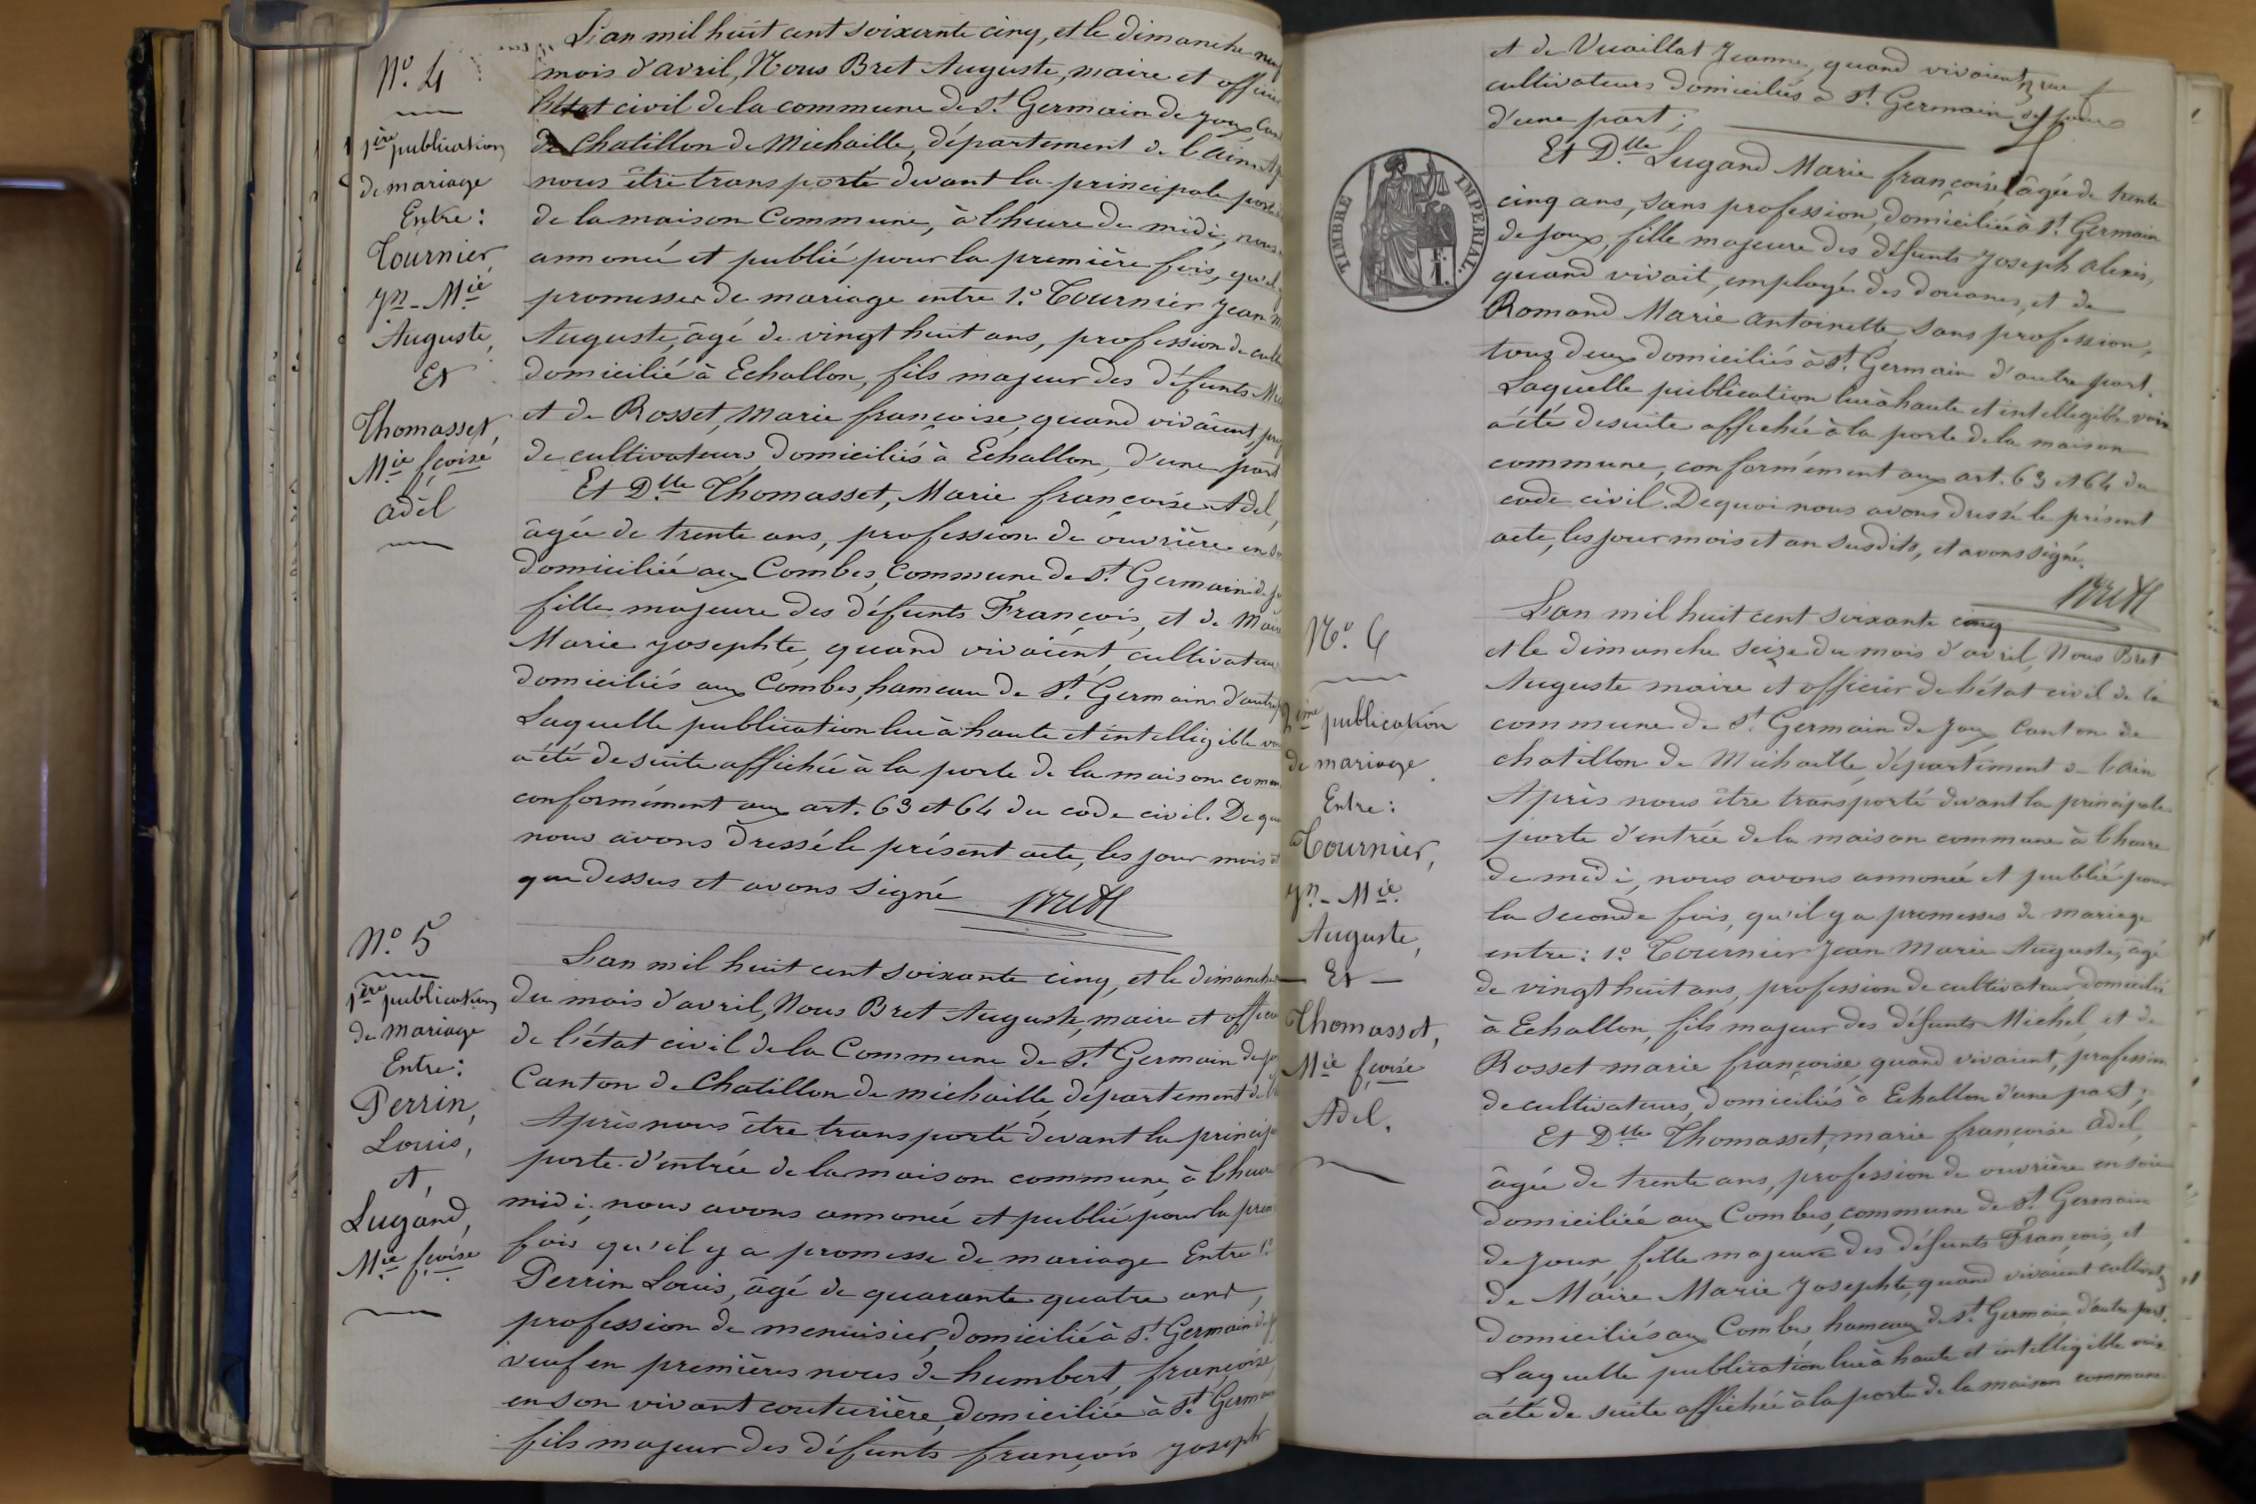 N.º 4
1ère publication
de mariage
Entre :
Tournier,
Jn_Mie
Auguste,
Et
Thomasset,
Mie fçoise
Adèl
L'an mil huit cent soixante cinq, et le dimanche
mois d'avril, Nous Bret Auguste, maire et officier
l'état civil de la commune de St Germain de Joux,
de Chatillon de Michaille, département de l'ain
nous être transporté devant la principale porte
de la maison Commune, à l'heure de midi, nous
annoncé et publié pour la première fois, qu'il
promesses de mariage entre 1.º Tournier Jean
Auguste, âgé de vingt huit ans, profession de
domicilié à Echallon, fils majeur des défunts
et de Rosset, Marie françoise, quand vivâient,
de cultivateurs, domiciliés à Echallon, d'une part
Et Dlle Thomasset, Marie françoise Adel,
âgée de trente ans, profession de ouvrière en
domiciliée aux Combes, Commune de St Germain de
fille majeure des défunts François, et de
Marie Josephte, quand vivaient, cultivateurs
domiciliés aux Combes, hameau de St Germain d'autre
Laquelle publication lue à haute et intelligible
a été de suite affichée à la porte de la maison
conformément aux art. 63 et 64 du code civil. De
nous avons dressé le présent acte, les jour mois
que dessus et avons signé
Bret
N.º 5
1ère publication
de mariage
Entre :
Perrin,
Louis,
et,
Lugand,
Mie fçoise
L'an mil huit cent soixante cinq, et le dimanche
du mois d'avril, Nous Bret Auguste, maire et
de l'état civil de la Commune de St Germain de
Canton de Chatillon de michaille, département de
Après nous être transporté devant la
porte d'entrée de la maison commune, à l'heure
midi, nous avons annoncé et publié pour la
fois qu'il y a promesse de mariage Entre 1.º
Perrin Louis, âgé de quarante quatre ans,
profession de menuisier, domicilié à St Germain
veuf en premières noces de humbert, françoise,
en son vivant couturière, domiciliée à St
fils majeur des défunts françois Joseph
et de Vuaillat Jeanne, quand vivaient
cultivateurs domiciliés à St Germain
d'une part ;
Et Dlle Lugand Marie françoise, âgée de trente
cinq ans, sans profession, domiciliée à St Germain
de Joux, fille majeure des défunts Joseph alexis,
quand vivait, employé des douanes, et de
Romand Marie antoinette, sans profession,
tous deux domiciliés à St Germain d'autre part.
Laquelle publication lue à haute et intelligible voix
a été de suite affichée à la porte de la maison
commune, conformément aux art. 63 et 64 du
code civil. De quoi nous avons dressé le présent
acte, les jour mois et an susdits, et avons signé.
Bret
TIMBRE IMPERIAL.
N.º 6
2ème publication
de mariage
Entre :
Tournier,
Jn_Mie
Auguste,
_ Et _
Thomasset,
Mie fçoise
Adel.
L'an mil huit cent soixante cinq
et le dimanche seize du mois d'avril, Nous Bret
Auguste maire et officier de l'état civil de la
commune de St Germain de Joux Canton de
chatillon de Michaille, département de l'ain
Après nous être transporté devant la principale
porte d'entrée de la maison commune à l'heure
de midi, nous avons annoncé et publié pour
la seconde fois, qu'il y a promesses de mariage
entre : 1.º Tournier Jean Marie Auguste, âgé
de vingt huit ans, profession de cultivateur domicilié
à Echallon, fils majeur des défunts Michel, et de
Rosset marie françoise, quand vivaient, profession
de cultivateurs, domiciliés à Echallon d'une part ;
Et Dlle Thomasset, marie françoise adel,
âgée de trente ans, profession de ouvrière en soie
domiciliée aux Combes, commune de St Germain
de Joux, fille majeure des défunts François, et
de Maire Marie Josephte, quand vivaient
domiciliés aux Combes hameau de St Germain d'autre part.
Laquelle publication lue à haute et intelligible voix
a été de suite affichée à la porte de la maison commune